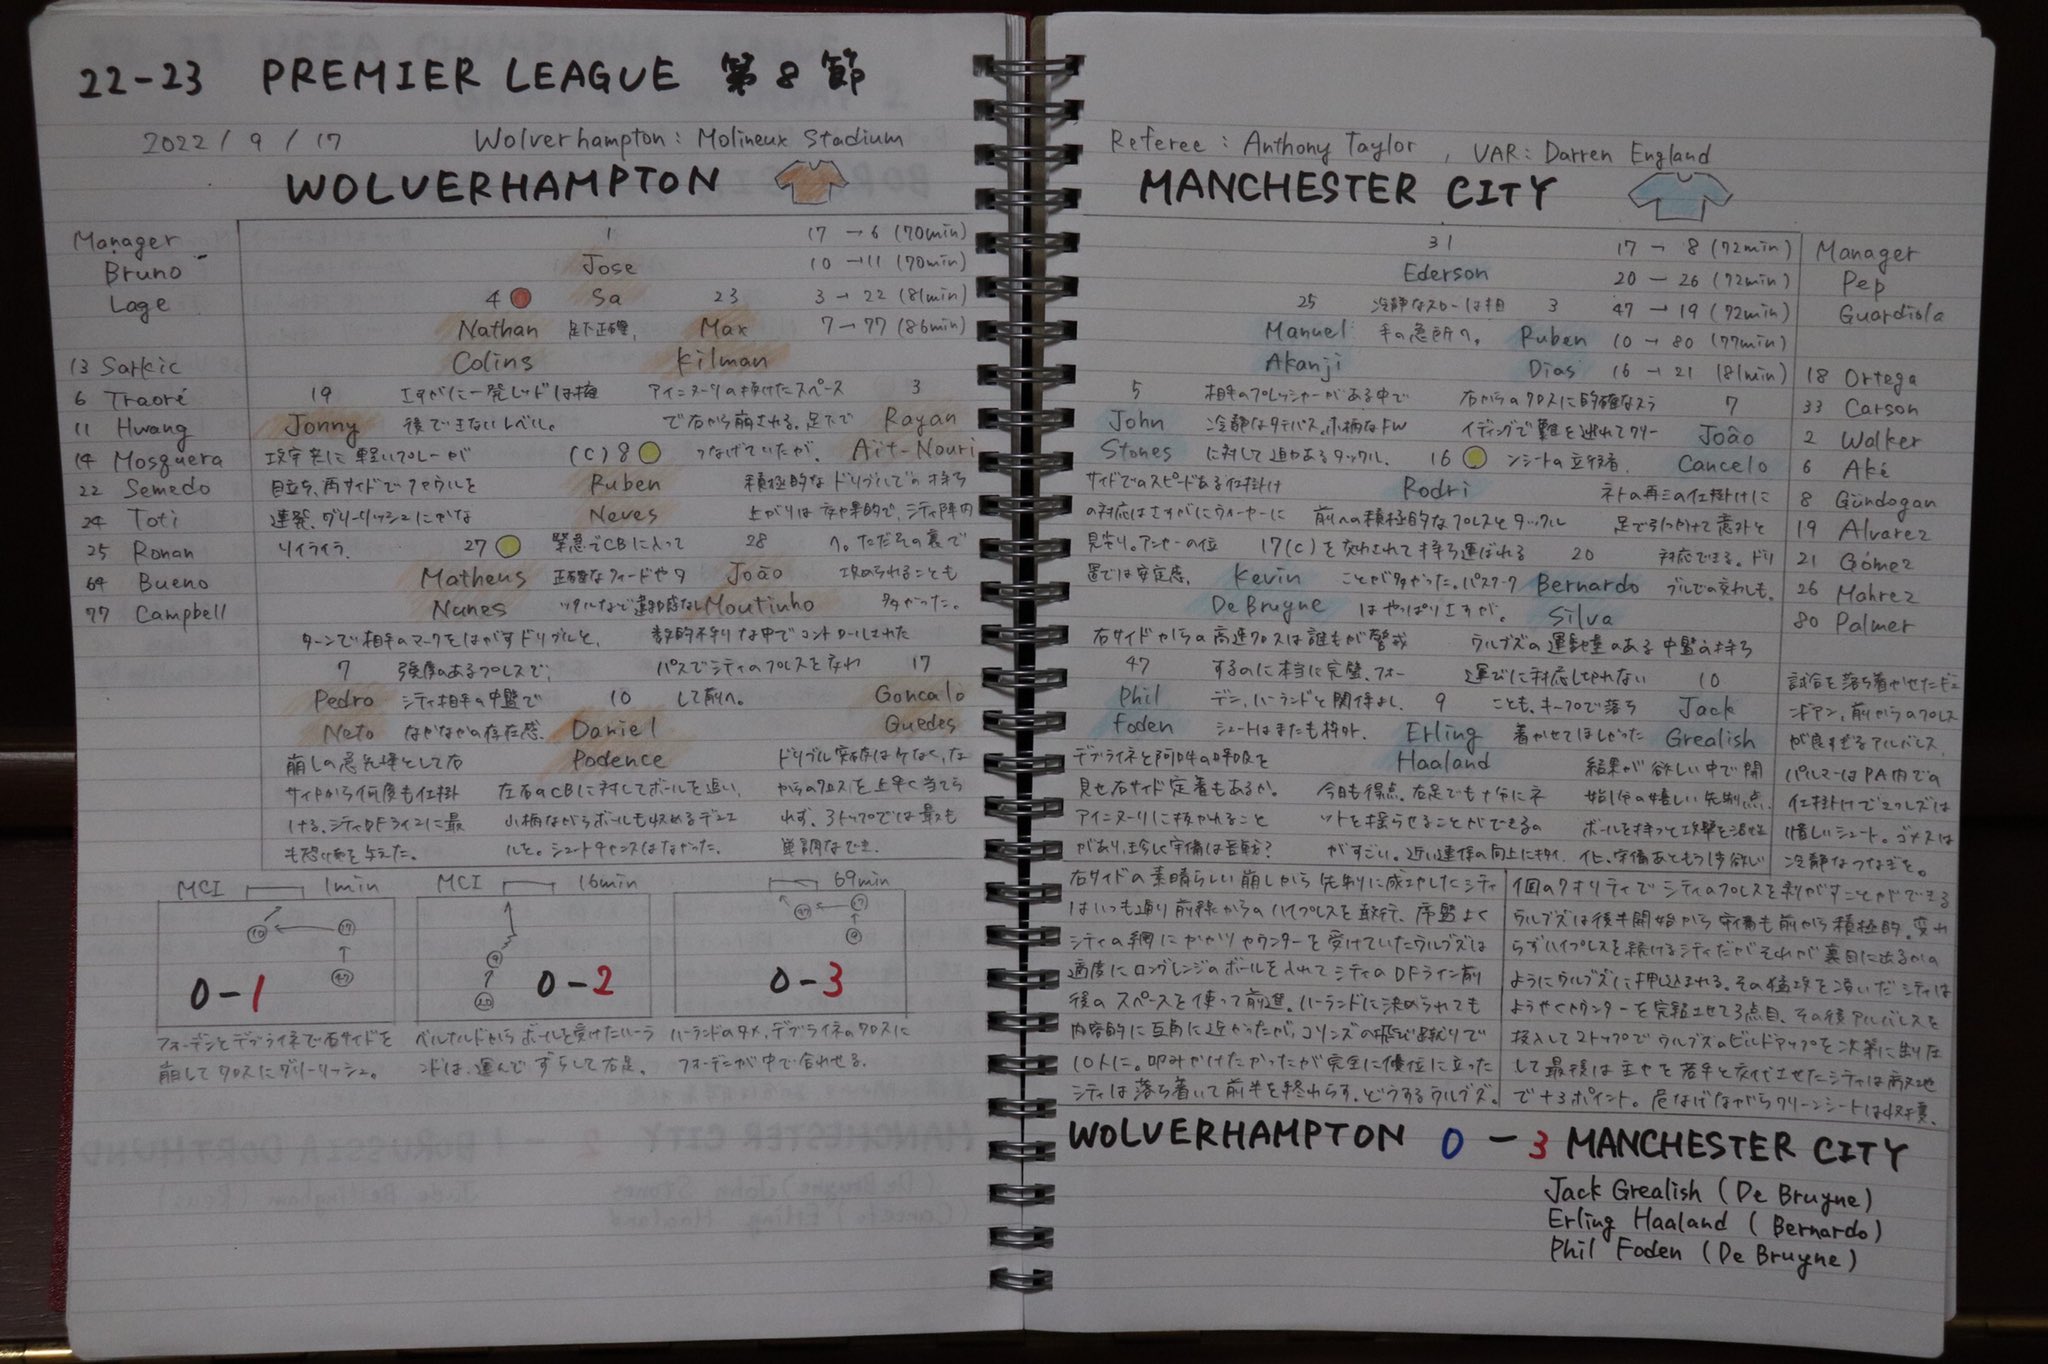 22-23 PREMIER LEAGUE 第8節
2022/9/17 Wolverhampton: Molineux Stadium
WOLVERHAMPTON
Manager
Bruno
Lage
13 Sarkic
6 Traoré
11 Hwang
14 Mosquera
22 Semedo
24 Toti
25 Ronan
64 Bueno
77 Campbell
17→6 (70min)
10→11 (70min)
3→22 (81min)
7→77 (86min)
1
Jose
Sa
4
Nathan
Colins
足下正確、
23
Max
Kilman
19
Jonny
さすがに一発レッドは擁
後できないレベル。
アイ=ヌーリの抜けたスペース
で右から崩される。足下で
つなげていたが、
3
Rayan
Aït-Nouri
攻守共に軽いプレーが
目立ち、両サイドでファウルを
連発、グリーリッシュにかな
りイライラ。
(C) 8
Ruben
Neves
積極的なドリブルでの持ち
上がりは効果的で、シティ陣内
へ。ただその裏で
攻められることも
多かった。
27
Matheus
Nunes
緊急でCBに入って
正確なフィードやタ
ックルなど違和感なし
28
João
Moutinho
ターンで相手のマークをはがすドリブルと、
強度のあるプレスで、
シティ相手の中盤で
なかなかの存在感。
数的不利な中でコントロールされた
パスでシティのプレスを交わ
して前へ。
7
Pedro
Neto
10
Daniel
Podence
17
Goncalo
Guedes
崩しの急先鋒として右
サイドから何度も仕掛
ける。シティDFラインに最
も恐怖を与えた。
左右のCBに対してボールを追い、
小柄ながらボールも収めるデュエ
ルを。シュートチャンスはなかった。
ドリブル突破は少なく、左
からのクロスを上手く当てら
れず、3トップでは最も
単調なでき。
MCI 1min
0-1
フォーデンとデブライネで右サイドを
崩してクロスにグリーリッシュ。
MCI 16min
0-2
ベルナルドからボールを受けたハーラ
ンドは、運んでずらして右足。
69min
0-3
ハーランドのタメ、デブライネのクロスに
フォーデンが中で合わせる。
Referee: Anthony Taylor, VAR: Darren England
MANCHESTER CITY
31
Ederson
冷静なスローは相
手の急所へ。
17→8 (72min)
20→26 (72min)
47→19 (72min)
10→80 (77min)
16→21 (81min)
Manager
Pep
Guardiola
18 Ortega
33 Carson
2 Walker
6 Aké
8 Gündogan
19 Alvarez
21 Gómez
26 Mahrez
80 Palmer
25
Manuel
Akanji
3
Ruben
Dias
5
John
Stones
相手のプレッシャーがある中で
冷静なタテパス。小柄なFW
に対して迫力あるタックル。
右からのクロスに的確なスラ
イディングで難を逃れてクリー
ンシートの立役者。
7
João
Cancelo
サイドでのスピードある仕掛け
の対応はさすがにウォーカーに
見劣り。アンカーの位
置では安定感。
16
Rodri
前への積極的なプレスとタックル
を交わされて持ち運ばれる
ことが多かった。パスワーク
はやっぱりさすが。
ネトの再三の仕掛けに
足で引っかけて意外と
対応できる。ドリ
ブルでの交わしも。
17(C)
Kevin
De Bruyne
20
Bernardo
Silva
右サイドからの高速クロスは誰もが警戒
するのに本当に完璧。フォー
デン、ハーランドと関係よし、
シュートはまたも枠外。
ウルブズの運動量のある中盤の持ち
運びに対応し切れない
ことも、キープで落ち
着かせてほしかった
47
Phil
Foden
9
Erling
Haaland
10
Jack
Grealish
デブライネと阿吽の呼吸を
見せ右サイド定着もあるか。
アイ=ヌーリに抜かれること
があり、珍しく守備は苦戦?
今日も得点。右足でも十分にネ
ットを揺らせることができるの
がすごい。近い連係の向上に期待。
結果が欲しい中で開
始1分の嬉しい先制点。
ボールを持つと攻撃を活性
化、守備あともう1歩欲しい
試合を落ち着かせたギュ
ンドアン、前からのプレス
が良すぎるアルバレス、
パルマーはPA内での
仕掛けでマフレズは
惜しいシュート。ゴメスは
冷静なつなぎを。
右サイドの素晴らしい崩しから先制に成功したシティ
はいつも通り前線からのハイプレスを敢行、序盤よく
シティの網にかかりカウンターを受けていたウルブズは
適度にロングレンジのボールを入れてシティのDFライン前
後のスペースを使って前進。ハーランドに決められても
内容的に互角に近かったが、コリンズの飛び蹴りで
10人に。叩みかけたかったが完全に優位に立った
シティは落ち着いて前半を終わらす。どうするウルブズ。
個のクオリティでシティのプレスを剥がすことができる
ウルブズは後半開始から守備も前から積極的。変わ
らずハイプレスを続けるシティだがそれが裏目に出るかの
ようにウルブズに押し込まれる。その猛攻を凌いだシティは
ようやくカウンターを完結させて3点目、その後アルバレスを
投入して2トップでウルブズのビルドアップを次第に制圧
して最後は主力を若手と交代させたシティは敵地
で+3ポイント。危なげながらクリーンシートは収穫。
WOLVERHAMPTON 0-3 MANCHESTER CITY
Jack Grealish (De Bruyne)
Erling Haaland (Bernardo)
Phil Foden (De Bruyne)